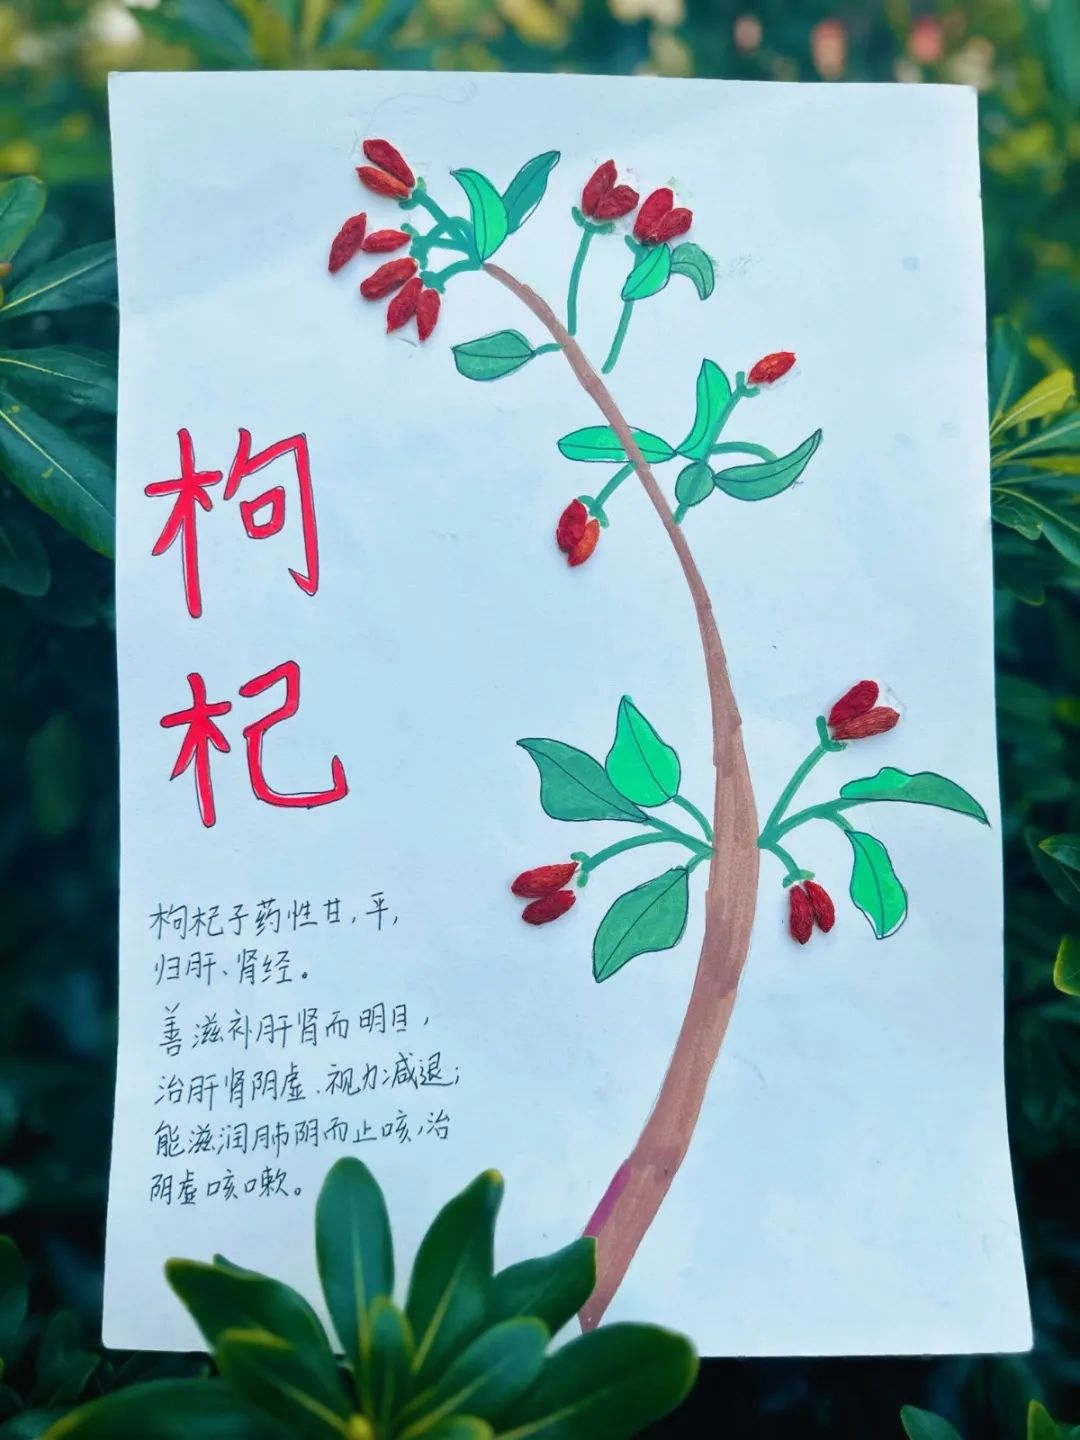 枸
杞
枸杞子药性甘，平，
归肝、肾经。
善滋补肝肾而明目，
治肝肾阴虚、视力减退；
能滋润肺阴而止咳，治
阴虚咳嗽。